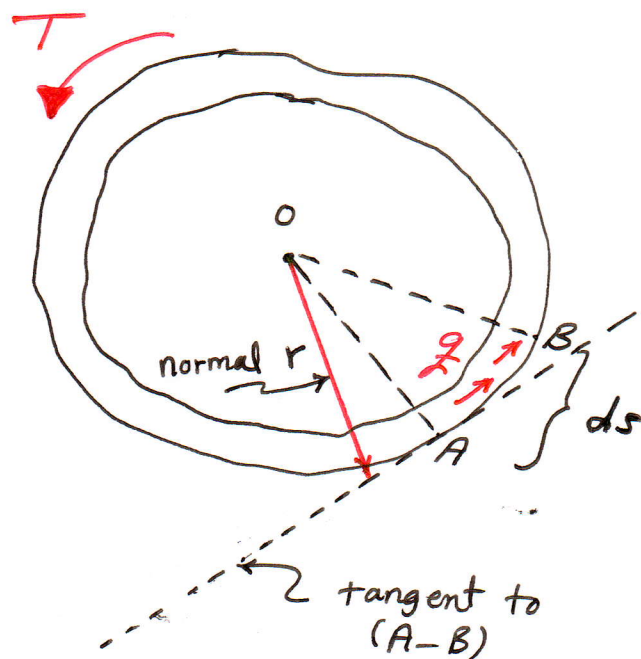 T
O
normal r
q
B
A
ds
tangent to
(A-B)